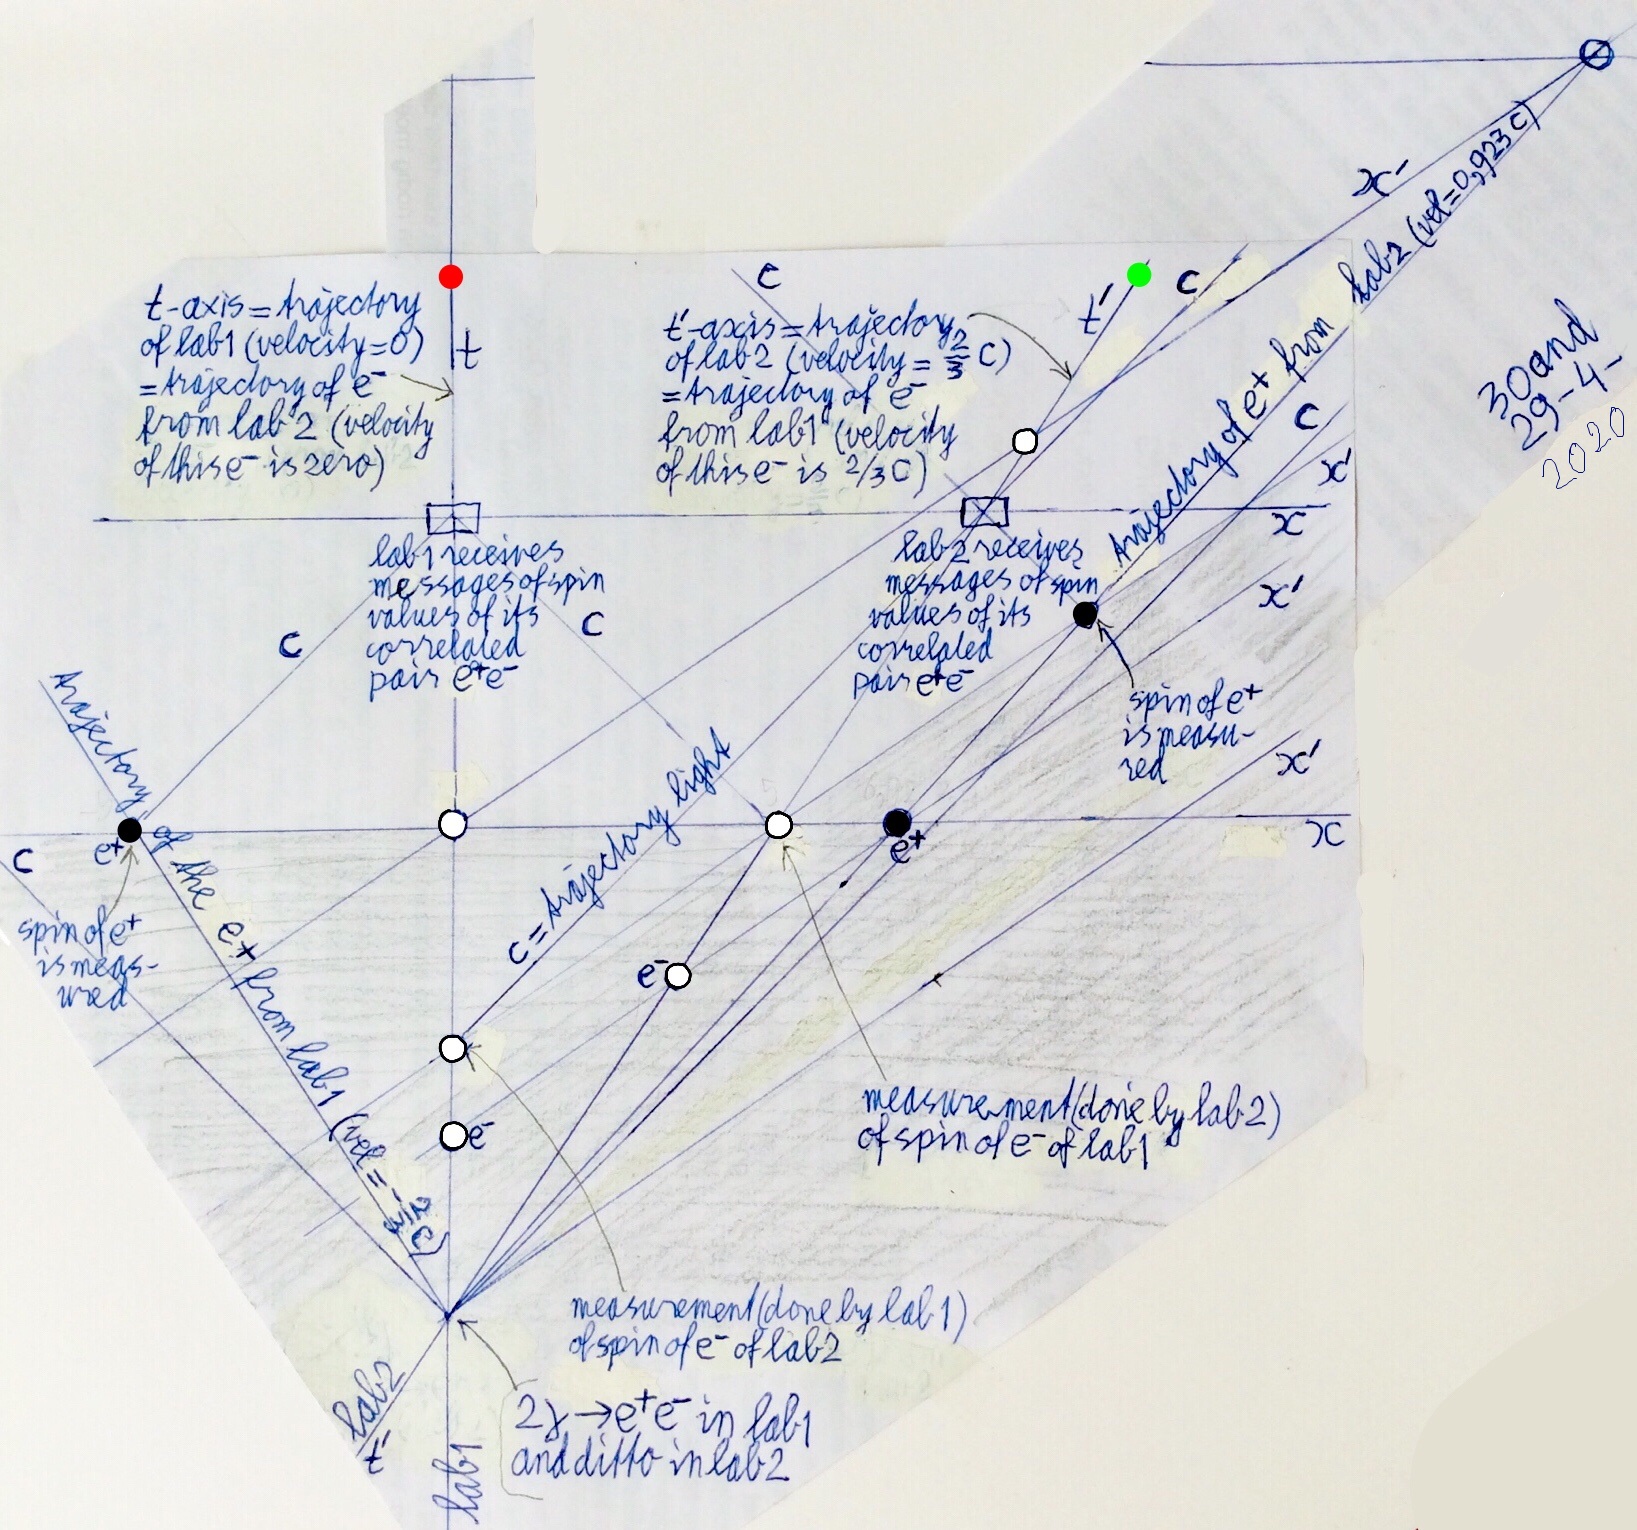 x-
lab2 (vel=0,923 c)
Trajectory of e+ from
c
t'
c
t-axis = trajectory
of lab1 (velocity=0)
= trajectory of e-
from lab 2 (velocity
of this e- is zero)
t
t'-axis = trajectory
of lab2 (velocity = 2/3 c)
= trajectory of e-
from lab1 (velocity
of this e- is 2/3 c)
30 and
29-4-
2020
c
x'
x
x'
lab1 receives
messages of spin
values of its
correlated
pair e+e-
lab2 receives
messages of spin
values of its
correlated
pair e+e-
c
c
spin of e+
is measu-
red
x'
x
Trajectory of the e+ from lab1 (vel=-2/3 c)
c = trajectory light
e+
e+
c
spin of e+
is meas-
ured
e-
e-
measurement (done by lab2)
of spin of e- of lab1
measurement (done by lab1)
of spin of e- of lab2
2γ → e+e- in lab1
and ditto in lab2
lab2
t'
lab1